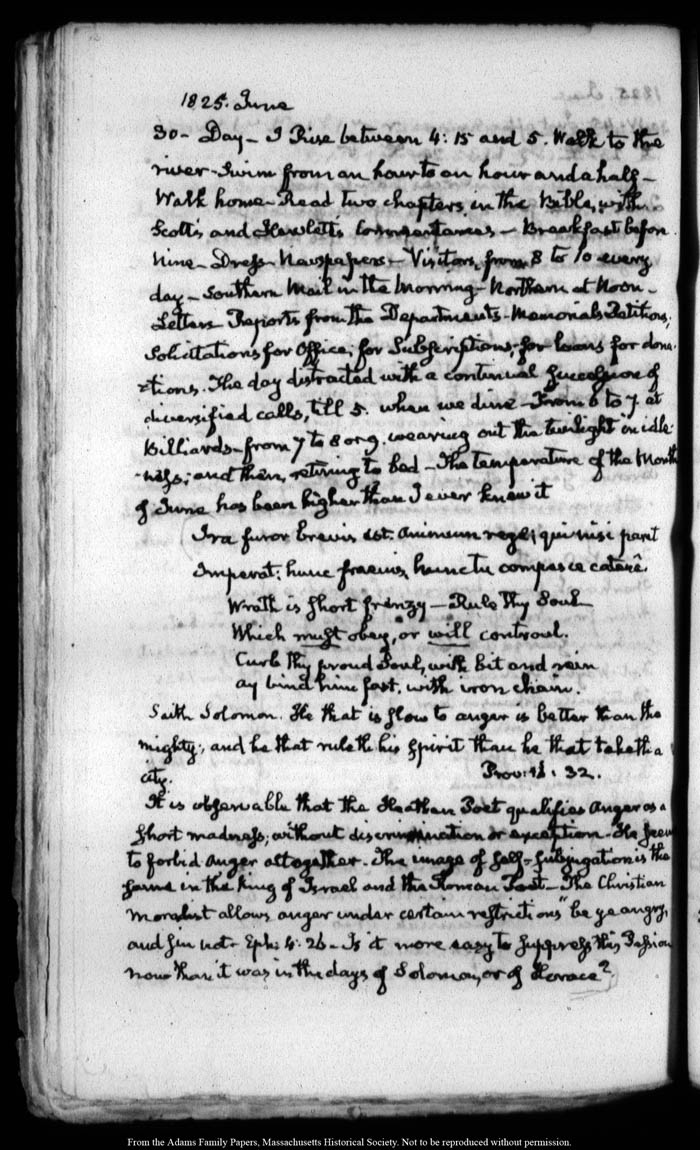 1825. June
30 - Day - I Rise between 4:15 and 5. Walk to the
river - Swim from an hour to an hour and a half -
Walk home - Read two chapters in the Bible, with
Scott's and Hewlett's Commentaries - Breakfast before
Nine - Dress - Newspapers - Visitors, from 8 to 10 every
day - Southern Mail in the Morning - Northern at Noon -
Letters Reports from the Departments - Memorials Petitions,
Solicitations for Office; for Subscriptions; for loans for dona-
-tions. The day distracted with a continual succession of
diversified calls, till 5. when we dine - From 6 to 7 at
Billiards - from 7 to 8 or 9, wearing out the twilight in idle-
-ness; and then, retiring to bed - The temperature of the Month
of June has been higher than I ever knew it
Ira furor brevis est: animum rege; qui nisi paret
Imperat: hunc fraenis, hunc tu compesce catenâ.
Wrath is short frenzy - Rule Thy Soul
Which must obey, or will controul.
Curb thy proud Soul, with bit and rein
ay bind him fast, with iron chain.
Saith Solomon. He that is slow to anger is better than the
mighty; and he that ruleth his Spirit than he that taketh a
city. Prov: 32.
It is observable that the Heathen Poet qualifies anger as a
short madness; without discrimination or exception - He seems
to forbid anger altogether. The image of Self-Subjugation is the
same in the King of Israel and the Roman Poet - The Christian
Moralist allows anger under certain restrictions "be ye angry,
and sin not - Eph: 4. 26 - Is it more easy to suppress this Passion
now than it was in the days of Solomon, or of Horace?
From the Adams Family Papers, Massachusetts Historical Society. Not to be reproduced without permission.